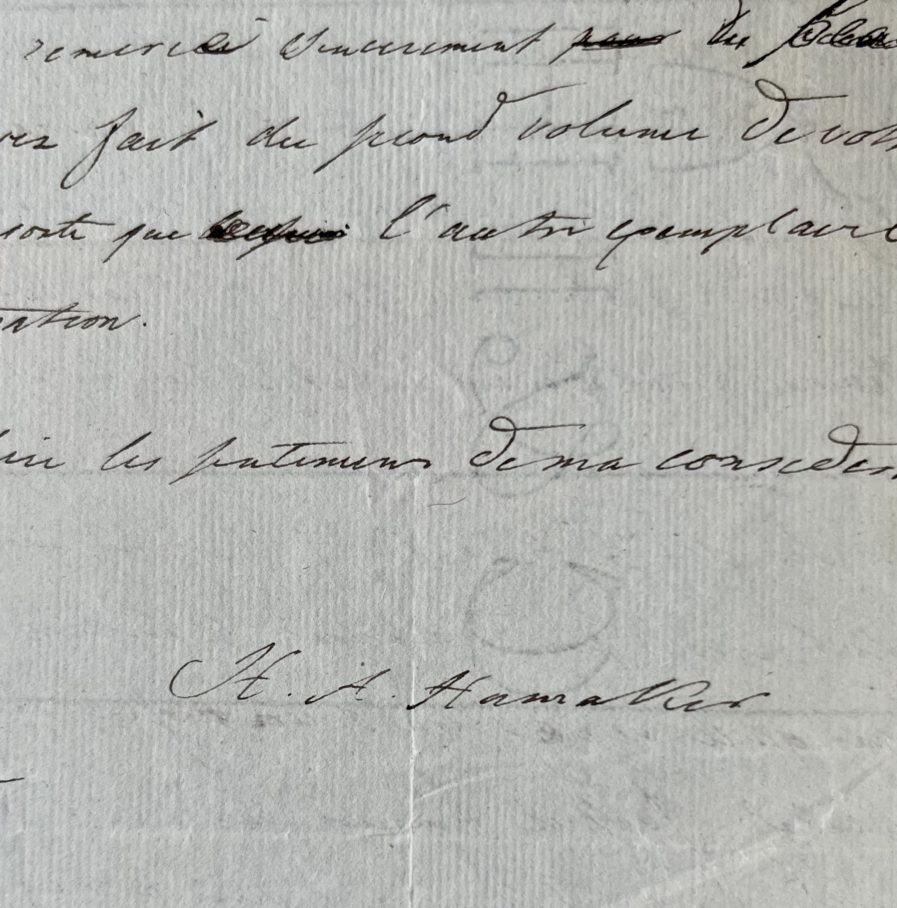 remercie sincerement pour du
vez fait du second volume de vot
sorte que l'autre exemplaire
ration.
les sentimens de ma consider
H. A. Hamaker